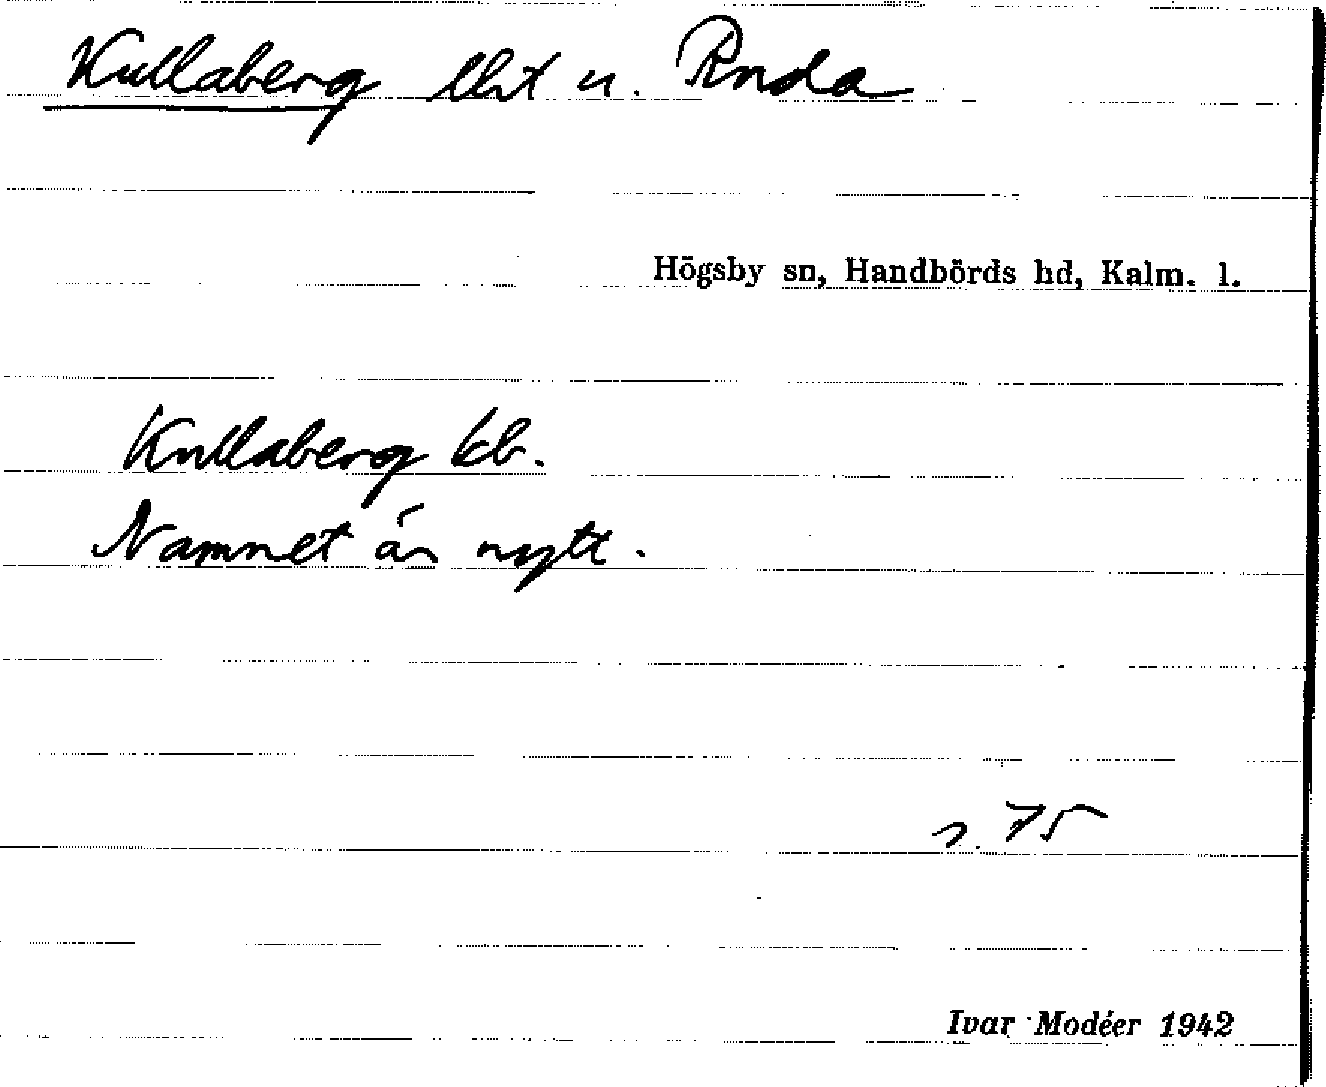 Kullaberg lht u. Ruda
Högsby sn, Handbörds hd, Kalm. l.
Kullaberg kb.
Namnet är nytt.
s. 75
Ivar Modéer 1942